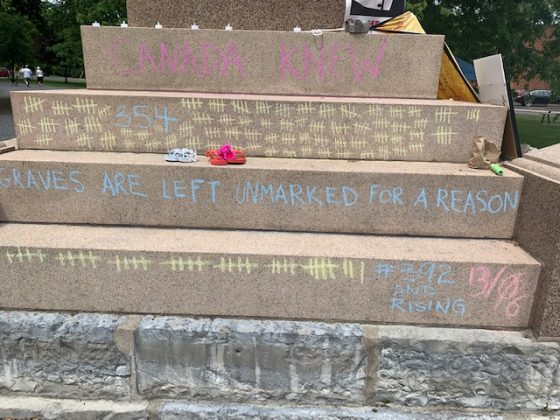 CANADA KNEW
354
GRAVES ARE LEFT UNMARKED FOR A REASON
#392
AND
RISING